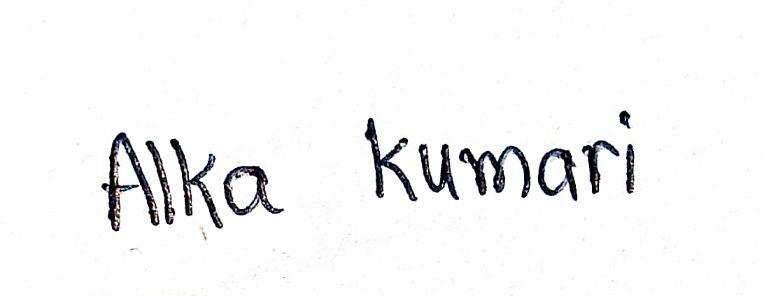 Alka kumari